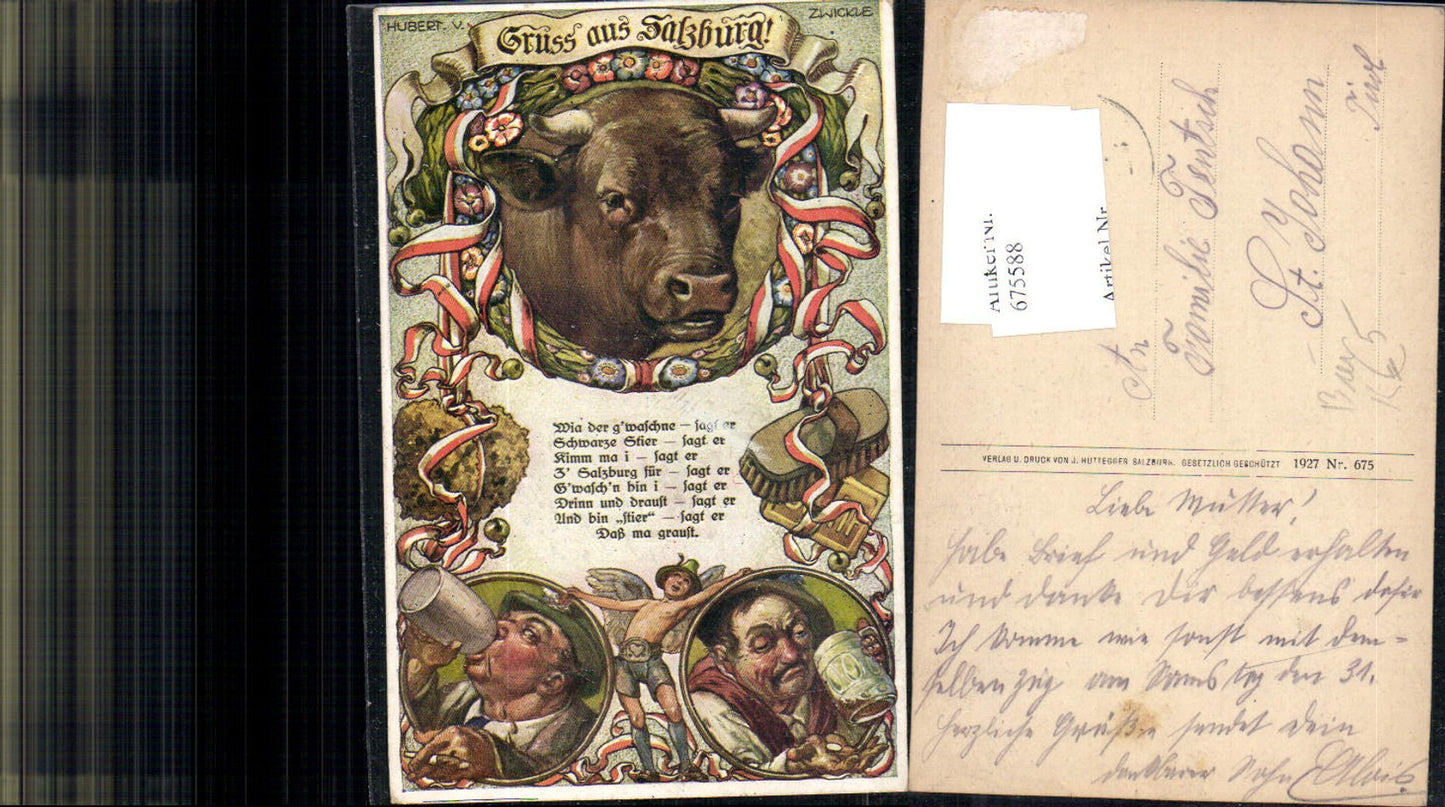 HUBERT. V. ZWICKLE
Gruss aus Salzburg!
Wia der g'waschne — sagt er
Schwarze Stier — sagt er
Kimm ma i — sagt er
Z' Salzburg für — sagt er
G'wasch'n bin i — sagt er
Drinn und draust — sagt er
Und bin „stier“ — sagt er
Daß ma graust.
Artikel Nr.
675588
Artikel Nr.
An
Familie Jentsch
St. Johann
Tirol
VERLAG U. DRUCK VON J. HUTTEGGER SALZBURG. GESETZLICH GESCHÜTZT 1927 Nr. 675
Liebe Mutter!
Habe Brief und Geld erhalten
und danke Dir bestens dafür
Ich komme wie sonst mit dem-
selben Zug am Samstag den 31.
Herzliche Grüße sendet Dein
dankbarer Sohn Alois.